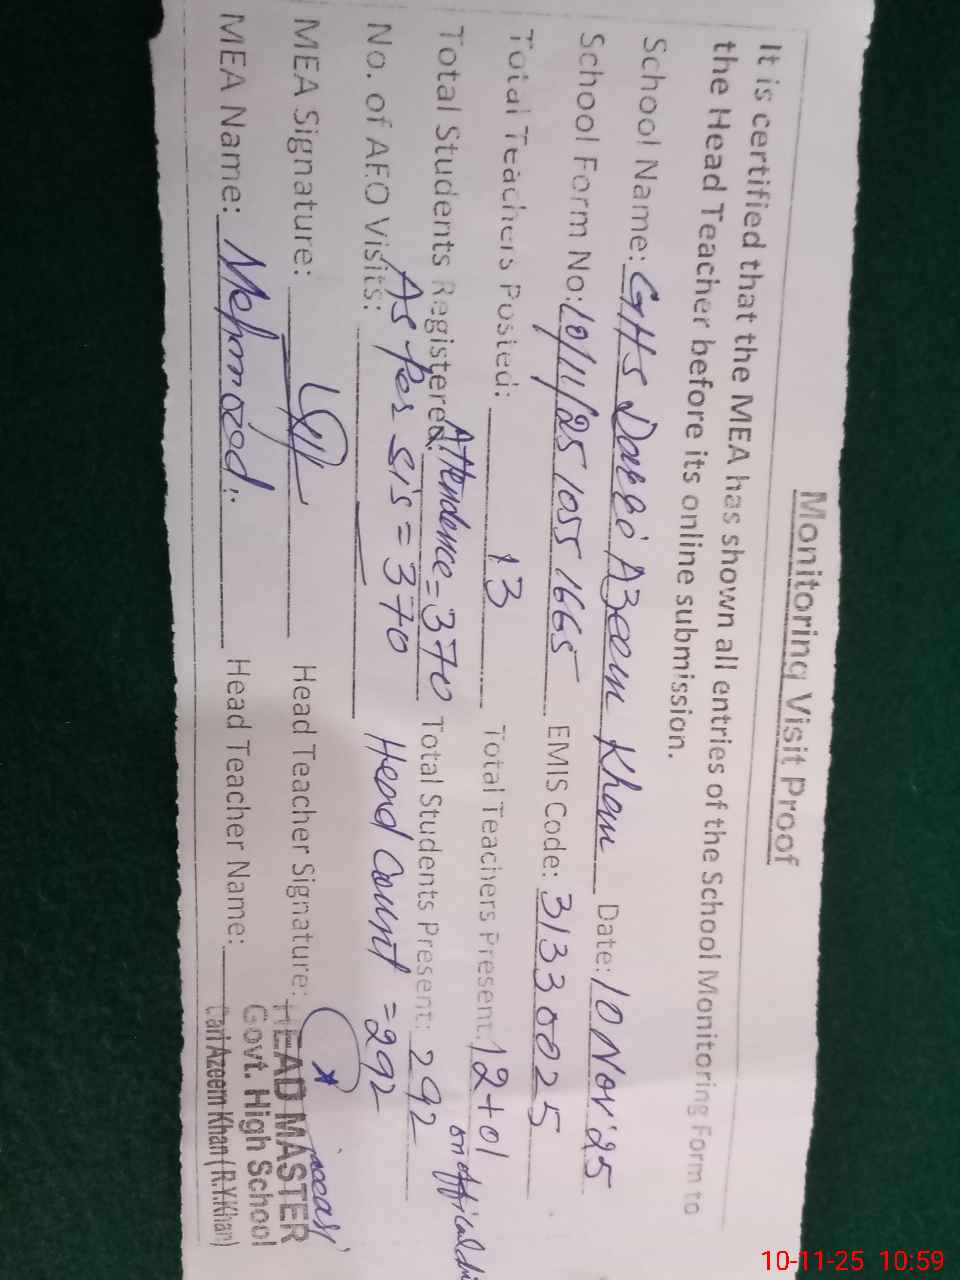 Monitoring Visit Proof
It is certified that the MEA has shown all entries of the School Monitoring Form to
the Head Teacher before its online submission.
School Name: GHS Darri Azeem Khan Date: 10 Nov 25
School Form No: 10/11/25 1055 1665 EMIS Code: 31330025
Total Teachers Posted: 13 Total Teachers Present: 12+01
on offical
Total Students Registered: Attendence = 370 Total Students Present: 292
As per sis = 370 Head Count = 292
No. of AEO Visits:
MEA Signature: Head Teacher Signature:
HEAD MASTER
Govt. High School
MEA Name: Mehmood Head Teacher Name:
Dari Azeem Khan (R.Y.Khan)
10-11-25 10:59